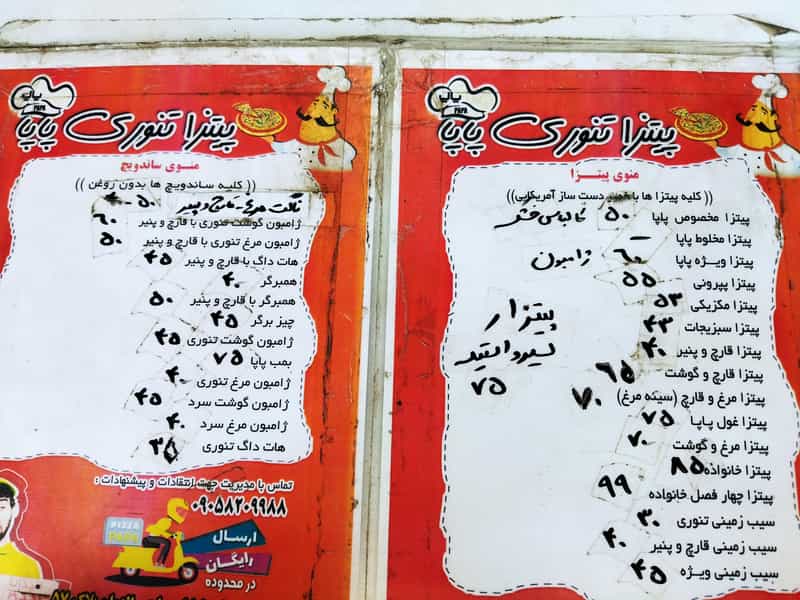 پاپا
PAPA
پیتزا تنوری پاپا
منوی پیتزا
(( کلیه پیتزا ها با خمیر دست ساز آمریکایی))
پیتزا مخصوص پاپا ۵۰ کالباس خشک
پیتزا مخلوط پاپا
پیتزا ویژه پاپا ۶۰ ژامبون
پیتزا پپرونی ۵۵
پیتزا مکزیکی ۵۳
پیتزا سبزیجات ۴۳
پیتزا قارچ و پنیر ۴۰
پیتزا قارچ و گوشت ۶۵
پیتزا مرغ و قارچ (سینه مرغ) ۷۰
پیتزا غول پاپا ۷۵
پیتزا مرغ و گوشت ۷۰
پیتزا خانواده ۸۵
پیتزا چهار فصل خانواده ۹۹
سیب زمینی تنوری ۳۰
سیب زمینی قارچ و پنیر ۴۰
سیب زمینی ویژه ۴۵
پیتزا
۷۵
پاپا
PAPA
پیتزا تنوری پاپا
منوی ساندویچ
(( کلیه ساندویچ ها بدون روغن ))
ناگت مرغ - قارچ و پنیر ۵۰
ژامبون گوشت تنوری با قارچ و پنیر ۶۰
ژامبون مرغ تنوری با قارچ و پنیر ۵۰
هات داگ با قارچ و پنیر ۴۵
همبرگر ۴۰
همبرگر با قارچ و پنیر ۵۰
چیز برگر ۴۵
ژامبون گوشت تنوری ۴۵
بمب پاپا ۷۵
ژامبون مرغ تنوری ۴۰
ژامبون گوشت سرد ۴۵
ژامبون مرغ سرد ۴۰
هات داگ تنوری ۳۵
تماس با مدیریت جهت انتقادات و پیشنهادات :
۰۹۰۵۸۲۰۹۹۸۸
PIZZA
PAPA
ارسال
رایگان
در محدوده